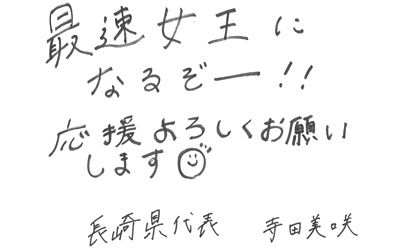 最速女王に
なるぞー!!
応援よろしくお願い
します
長崎県代表 寺田美咲